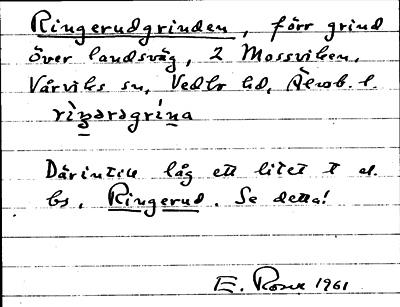 Ringerudgrinden, förr grind
över landsväg, 2 Mossviken,
Vårviks sn, Vedbo hd, Älvsb. l.
rìŋərəgrína
Därintill låg ett litet t el.
bs, Ringerud. Se detta!
E. Rosell 1961